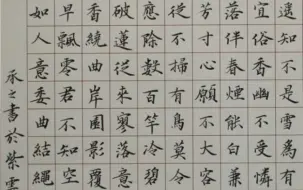 遺不知是雪為有
宜俗香幽不受憐
落伴春煙能白兼
芳寸心願不大容
從不掃有鳥莫令
應除數百竿冷碧
破蓮從來寒落意
香繞曲岸圓影覆
早飄零君不知空
如人意委曲結繩
承之書於紫雲